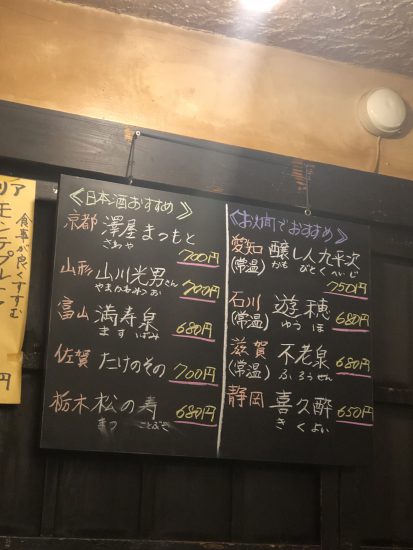 リア
モンテプルチ
食事が良くすすむ
円
≪日本酒おすすめ≫
京都 澤屋まつもと
さわや
700円
山形 山川光男さん
やまかわみつお
700円
富山 満寿泉 680円
ますいずみ
佐賀 たけのその 700円
栃木 松の寿 680円
まつ ことぶき
≪お燗でおすすめ≫
愛知 醸し人九平次
(常温) かも びとくへいじ
750円
石川 遊穂 680円
(常温) ゆうほ
滋賀 不老泉 680円
(常温) ふろうせん
静岡 喜久酔 650円
きくよい